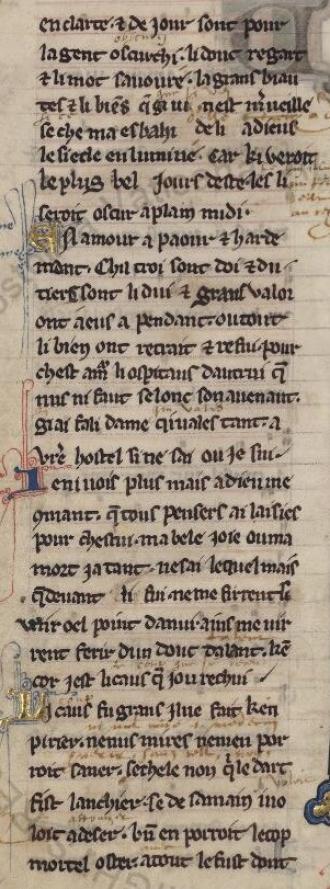 en clarte · ⁊ de jour sont pour
la gent oscurchi · li douc regart
⁊ li mot savoure · la grans biau
tes ⁊ li biẽs q̃ gi vi nest m̃veille
se che ma esbahi de li a dieus
le siecle enlumine · car ki veroit
le plus bel jours deste · les li
seroit oscur a plain midi ·
En amour a paour ⁊ harde
ment · Chil troi sont doi ⁊ du
tiers sont li dui ⁊ grans valor
ont a eus a pendant · ou tout
li bien ont retrait ⁊ refui · pour
chest am̃ li ospitaus dautrui q̃
nus ni faut selonc son avenant ·
gi ai fali dame q̃ vales tant · a
vr̃e hostel si ne sai ou je sui ·
Je ni vois plus mais a dieu me
9mant · q̃ tous pensers ai laisies
pour chestui · ma bele joie ou ma
mort ja tant · ne sai lequel mais
q̃ devant li fui · ne me firent si
vair oel point danui · ains me vin
rent ferir dun douc talant · kẽ
cor jest li caus q̃ jou rechui
Li caus fu grans il ne fait ken
pirier · ne nus mires ne men por
roit saner · se chele non q̃ le dart
fist lanchier · se de sa main mi vo
loit adeser · bñ en porroit le cop
mortel oster · a tout le fust dont